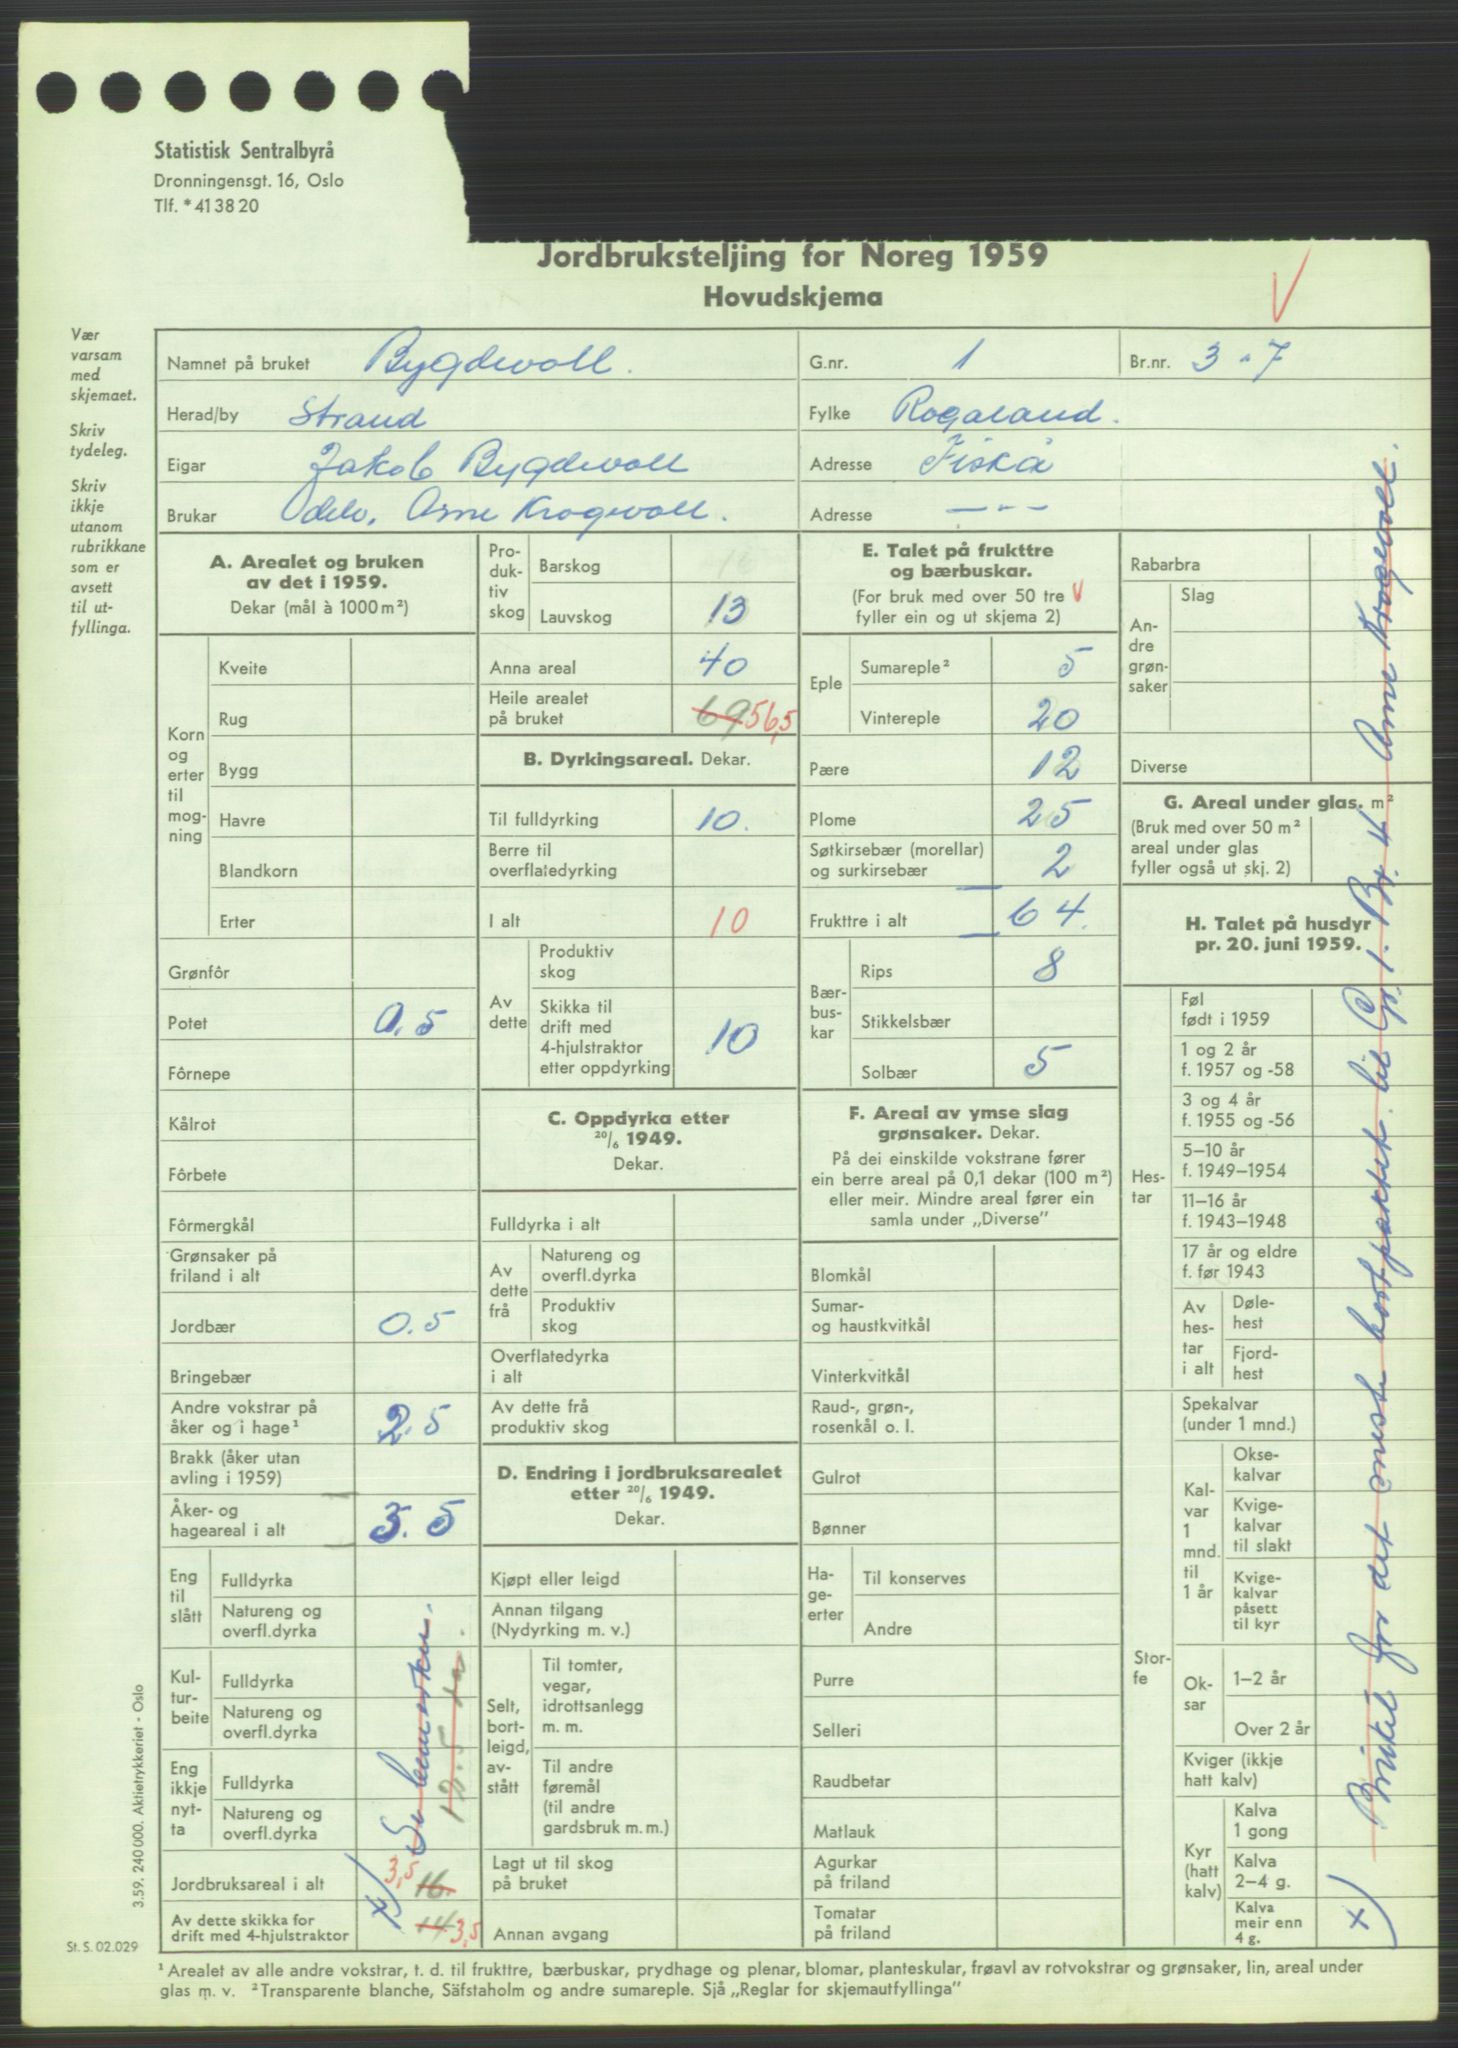 Statistisk Sentralbyrå
Dronningensgt. 16, Oslo
Tlf. * 41 38 20
Jordbruksteljing for Noreg 1959
Hovudskjema
Vær
varsam
med
skjemaet.
Skriv
tydeleg.
Skriv
ikkje
utanom
rubrikkane
som er
avsett
til ut-
fyllinga.
Namnet på bruket Bygdevoll. G.nr. 1 Br.nr. 3 - 7
Herad/by Strand Fylke Rogaland.
Eigar Jakob Bygdevoll Adresse Fiskå
Brukar Odelv. Arne Krogevoll. Adresse - - -
A. Arealet og bruken
av det i 1959.
Dekar (mål à 1000 m²)
Korn
og
erter
til
mog-
ning
Kveite
Rug
Bygg
Havre
Blandkorn
Erter
Grønfôr
Potet 0.5
Fôrnepe
Kålrot
Fôrbete
Fôrmergkål
Grønsaker på
friland i alt
Jordbær 0.5
Bringebær
Andre vokstrar på
åker og i hage¹ 2.5
Brakk (åker utan
avling i 1959)
Åker- og
hageareal i alt 3.5
Eng
til
slått
Fulldyrka
Natureng og
overfl.dyrka
Kul-
tur-
beite
Fulldyrka
Natureng og
overfl.dyrka
Eng
ikkje
nyt-
ta
Fulldyrka
Natureng og
overfl.dyrka
x) Se
12.5
Jordbruksareal i alt 3,5 16.
Av dette skikka for
drift med 4-hjulstraktor 14 3,5
Pro-
duk-
tiv
skog
Barskog
Lauvskog 13
Anna areal 40
Heile arealet
på bruket 69 56,5
B. Dyrkingsareal. Dekar.
Til fulldyrking 10.
Berre til
overflatedyrking
I alt 10
Av
dette
Produktiv
skog
Skikka til
drift med
4-hjulstraktor
etter oppdyrking 10
C. Oppdyrka etter
20/6 1949.
Dekar.
Fulldyrka i alt
Av
dette
frå
Natureng og
overfl.dyrka
Produktiv
skog
Overflatedyrka
i alt
Av dette frå
produktiv skog
D. Endring i jordbruksarealet
etter 20/6 1949.
Dekar.
Kjøpt eller leigd
Annan tilgang
(Nydyrking m. v.)
Selt,
bort-
leigd,
av-
stått
Til tomter,
vegar,
idrottsanlegg
m. m.
Til andre
føremål
(til andre
gardsbruk m. m.)
Lagt ut til skog
på bruket
Annan avgang
E. Talet på frukttre
og bærbuskar.
(For bruk med over 50 tre
fyller ein og ut skjema 2)
Eple
Sumareple² 5
Vintereple 20
Pære 12
Plome 25
Søtkirsebær (morellar)
og surkirsebær 2
Frukttre i alt 64.
Bær-
bus-
kar
Rips 8
Stikkelsbær
Solbær 5
F. Areal av ymse slag
grønsaker. Dekar.
På dei einskilde vokstrane fører
ein berre areal på 0,1 dekar (100 m²)
eller meir. Mindre areal fører ein
samla under „Diverse”
Blomkål
Sumar-
og haustkvitkål
Vinterkvitkål
Raud-, grøn-,
rosenkål o. l.
Gulrot
Bønner
Ha-
ge-
erter
Til konserves
Andre
Purre
Selleri
Raudbetar
Matlauk
Agurkar
på friland
Tomatar
på friland
Rabarbra
An-
dre
grøn-
saker
Slag
Diverse
G. Areal under glas. m²
(Bruk med over 50 m²
areal under glas
fyller også ut skj. 2)
H. Talet på husdyr
pr. 20. juni 1959.
Hes-
tar
Føl
født i 1959
1 og 2 år
f. 1957 og -58
3 og 4 år
f. 1955 og -56
5–10 år
f. 1949–1954
11–16 år
f. 1943–1948
17 år og eldre
f. før 1943
Av
hes-
tar
i alt
Døle-
hest
Fjord-
hest
Stor-
fe
Spekalvar
(under 1 mnd.)
Kal-
var
1
mnd.
til
1 år
Okse-
kalvar
Kvige-
kalvar
til slakt
Kvige-
kalvar
påsett
til kyr
Ok-
sar
1–2 år
Over 2 år
Kviger (ikkje
hatt kalv)
Kyr
(hatt
kalv)
Kalva
1 gong
Kalva
2–4 g.
Kalva
meir enn
4 g.
x) Bruket for det meste bortpaktet til G. 1. Br. 4 Arne Krogevoll.
3.59. 240 000. Aktietrykkeriet - Oslo
St. S. 02.029
¹ Arealet av alle andre vokstrar, t. d. til frukttre, bærbuskar, prydhage og plenar, blomar, planteskular, frøavl av rotvokstrar og grønsaker, lin, areal under
glas m. v. ² Transparente blanche, Säfstaholm og andre sumareple. Sjå „Reglar for skjemautfyllinga”